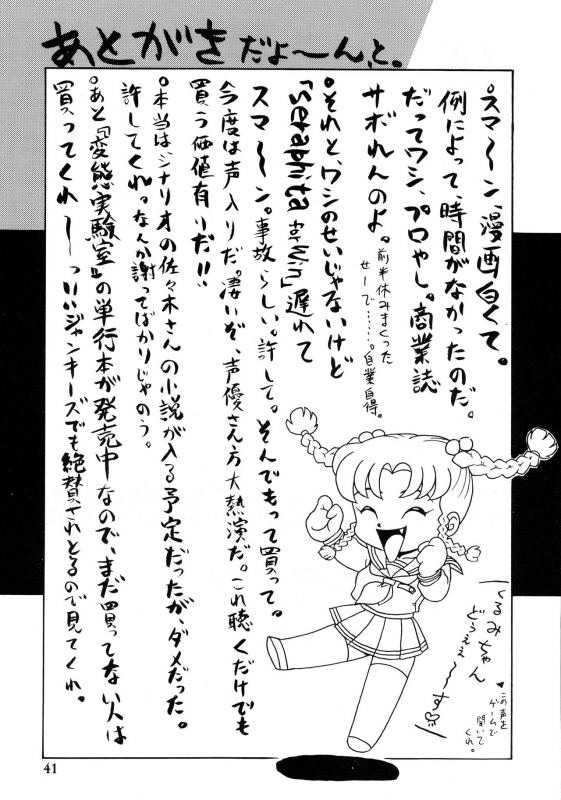 あとがきだよ〜ん、と。
○スマ〜ン、漫画白くて。
例によって、時間がなかったのだ。
だってワシ、プロやし。商業誌
サボれんのよ。前半休みまくった
せーで……。自業自得。
○それと、ワシのせいじゃないけど
「Seraphita for Win」遅れて
スマ〜ン。事故らしい。許して。そんでもって買って。
今度は声入りだ。凄いぞ、声優さん方大熱演だ。これ聴くだけでも
買う価値有りだ!!
○本当は、シナリオの佐々木さんの小説が入る予定だったが、ダメだった。
許してくれっ。なんか謝ってばかりじゃのう。
○あと『変態実験室』の単行本が発売中なので、まだ買ってない人は
買ってくれ〜〜っ。ジャンキーズでも絶賛されとるので見てくれ。
くるみちゃん
どぅぇぇ〜〜す♡
▼この声を
ゲームで
聞いて
くれ。
41